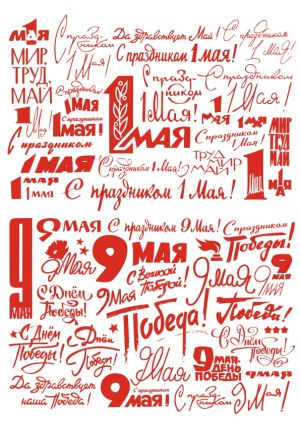 1 МАЯ
С праздником
Да здравствует Май!
С праздником
1 Мая!
МИР
ТРУД
МАЙ
С праздником 1 Мая!
С праздником
1 МАЯ
С праздником
1 Мая!
С праздником
1 Мая!
1 МАЯ
1 Мая
С праздником
1 мая!
С праздником
1 Мая!
1 Мая!
МИР
ТРУД
МАЙ
С праздником
1 МАЯ
С праздником
1 Мая!
ТРУД
МАЙ МИР
1 Мая
1 мая
1 мая
С праздником 1 Мая!
1 Мая!
9 МАЯ
9 МАЯ
С праздником 9 Мая!
С праздником
Победы!
9 Мая
9 МАЯ
С Великой
Победой!
9 Мая
9 МАЯ
С Днём
Победы!
9 Мая
Победа!
Победа!
С Днём
Победы!
С Днём
Победы!
9 Мая
С Днём
Победы!
9 МАЯ
ДЕНЬ
ПОБЕДЫ
Да здравствует
наша Победа!
9 Мая
С праздником
9 мая!
С праздником
9 Мая!
9 Мая